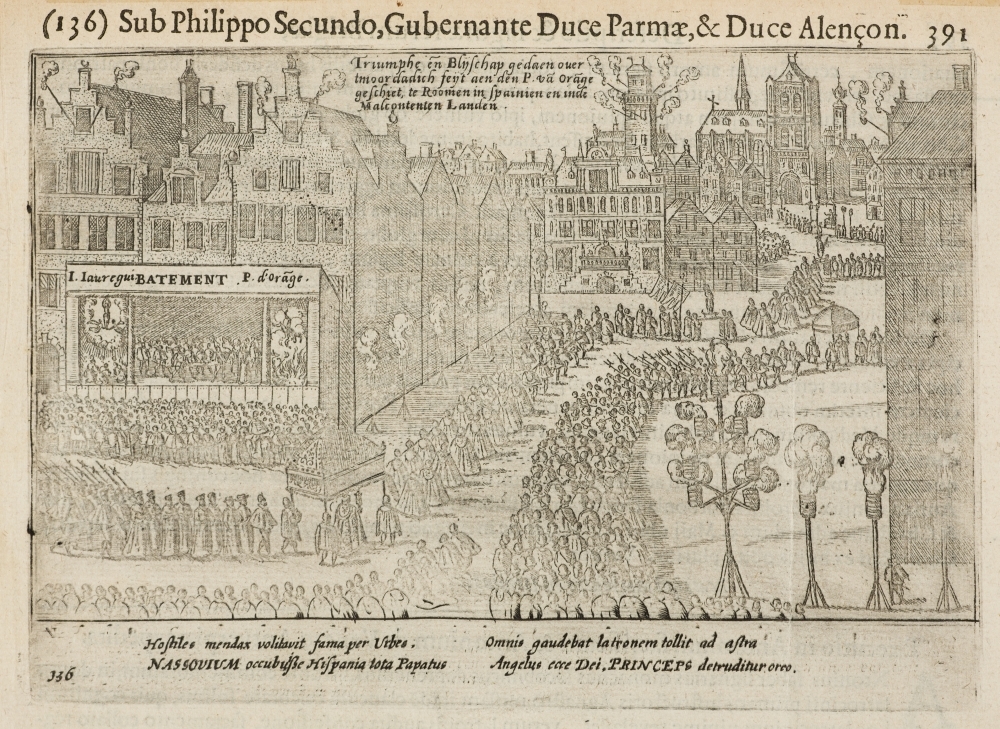 (136) Sub Philippo Secundo, Gubernante Duce Parmæ, & Duce Alençon. 391
Triumphe en̄ Blÿschap gedaen ouer
tmoordadich feyt aen den P. vā Orāge
geschiet, te Roomen in spainien en inde
Malcontenten Landen.
I. Iauregui BATEMENT P. d'orāge.
Hostiles mendax volitavit fama per Urbes.
NASSOVIUM occubuisse Hispania tota Papatus
Omnis gaudebat latronem tollit ad astra
Angelus ecce Dei, PRINCEPS detruditur orco.
136